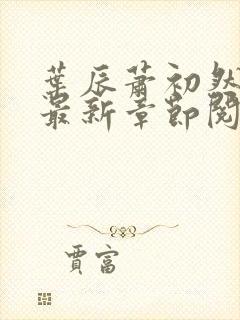 葉辰蕭初然
最新章節閱
賈富